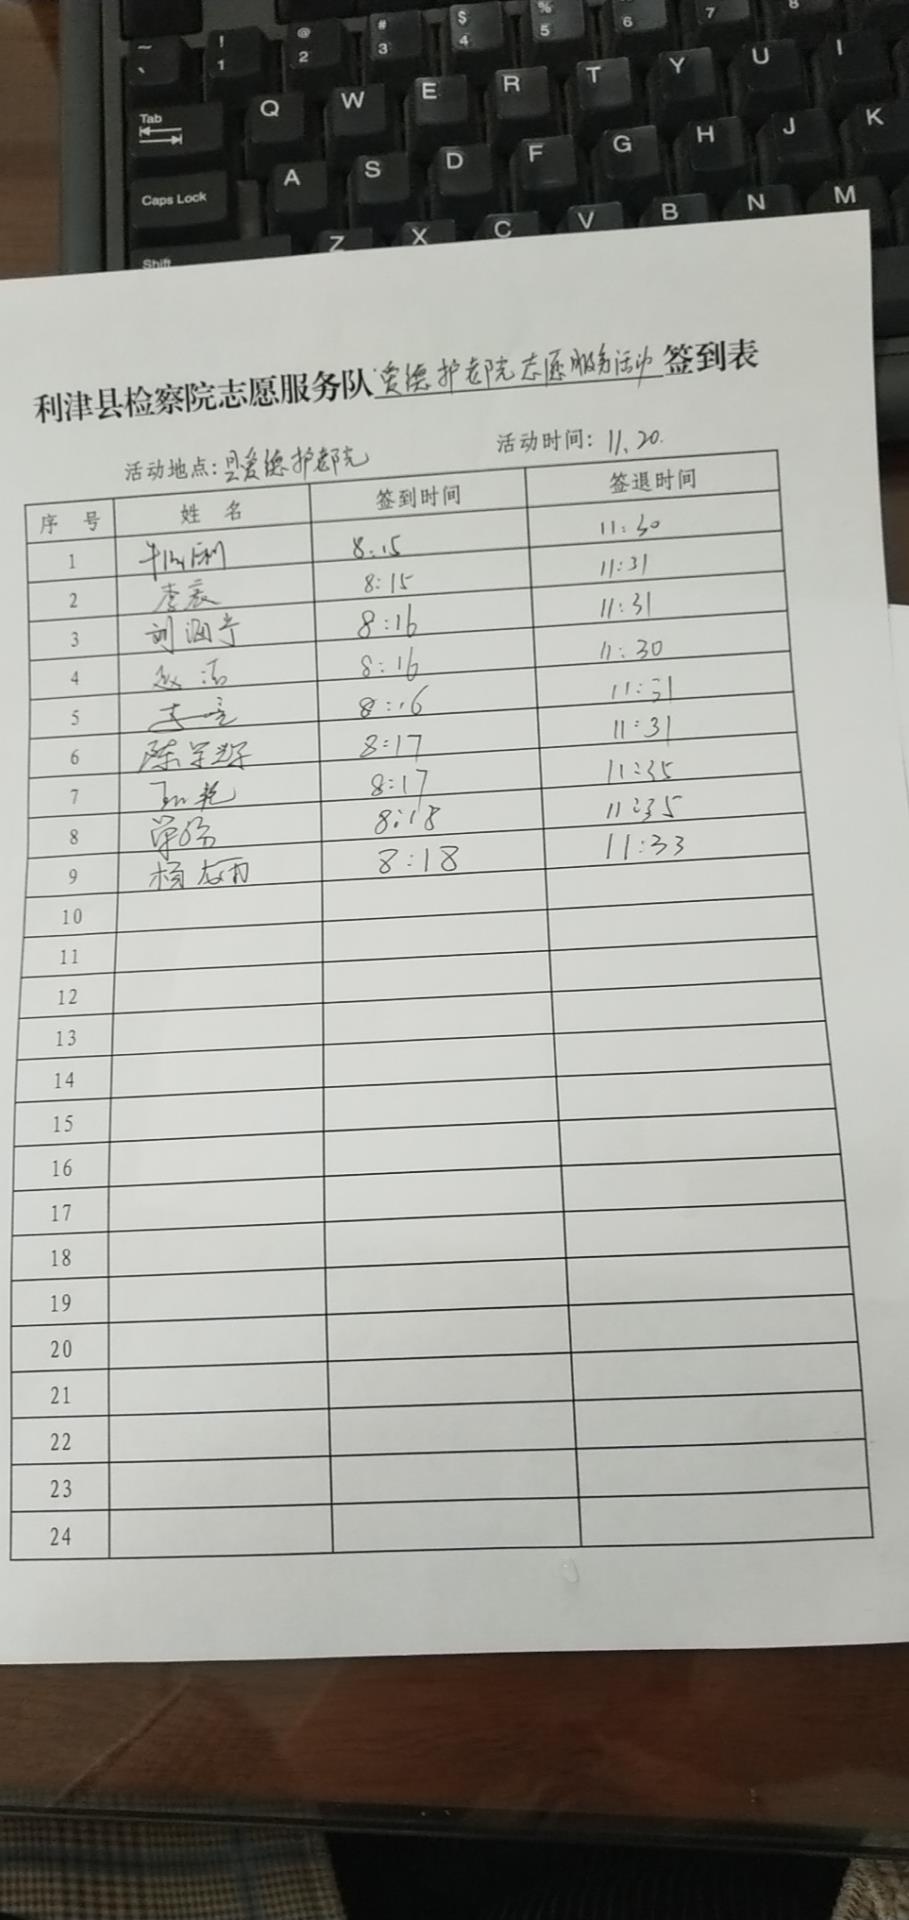 ~ ! @ # $ %
` 1 2 3 4 5 6 7 8
Tab Q W E R T Y U I
Caps Lock A S D F G H J K
Shift Z X C V B N M
利津县检察院志愿服务队爱德护老院志愿服务活动签到表
活动地点:县爱德护老院 活动时间: 11.20.
序 号 姓 名 签到时间 签退时间
1 8:15 11:30
2 李辰 8:15 11:31
3 刘海宁 8:16 11:31
4 赵洁 8:16 11:30
5 8:16 11:31
6 陈 8:17 11:31
7 8:17 11:35
8 8:18 11:35
9 杨 雨 8:18 11:33
10
11
12
13
14
15
16
17
18
19
20
21
22
23
24